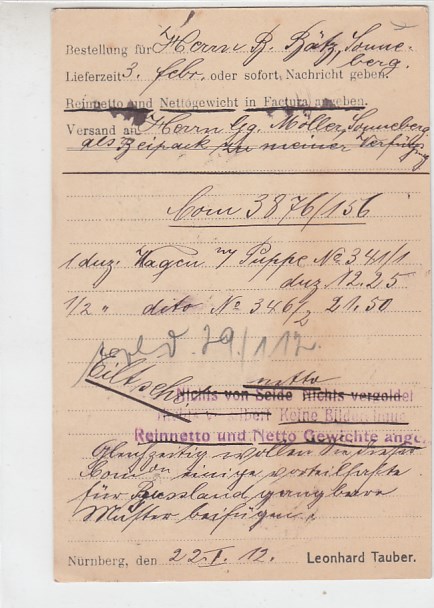 Bestellung für Herrn B. Bätz, Sonne-
berg.
Lieferzeit 3. febr. oder sofort, Nachricht geben.
Reinnetto und Nettogewicht in Factura angeben.
Versand an Herrn Gg. Möller, Sonneberg
als Beipack zu meiner Verfügung
Com 3876/156
1 duz. Wagen m/ Puppe No 341/1
duz 12.25
1/2 " dito No 346/2 21.50
29/1 12.
netto
Nichts von Seide Nichts vergoldet
Keine
Reinnetto und Netto Gewichte ange
Gleichzeitig wollen Sie dieser
Com on einige vorteilhafte
für Russland gangbare
Muster beifügen.
Nürnberg, den 22. I. 12. Leonhard Tauber.